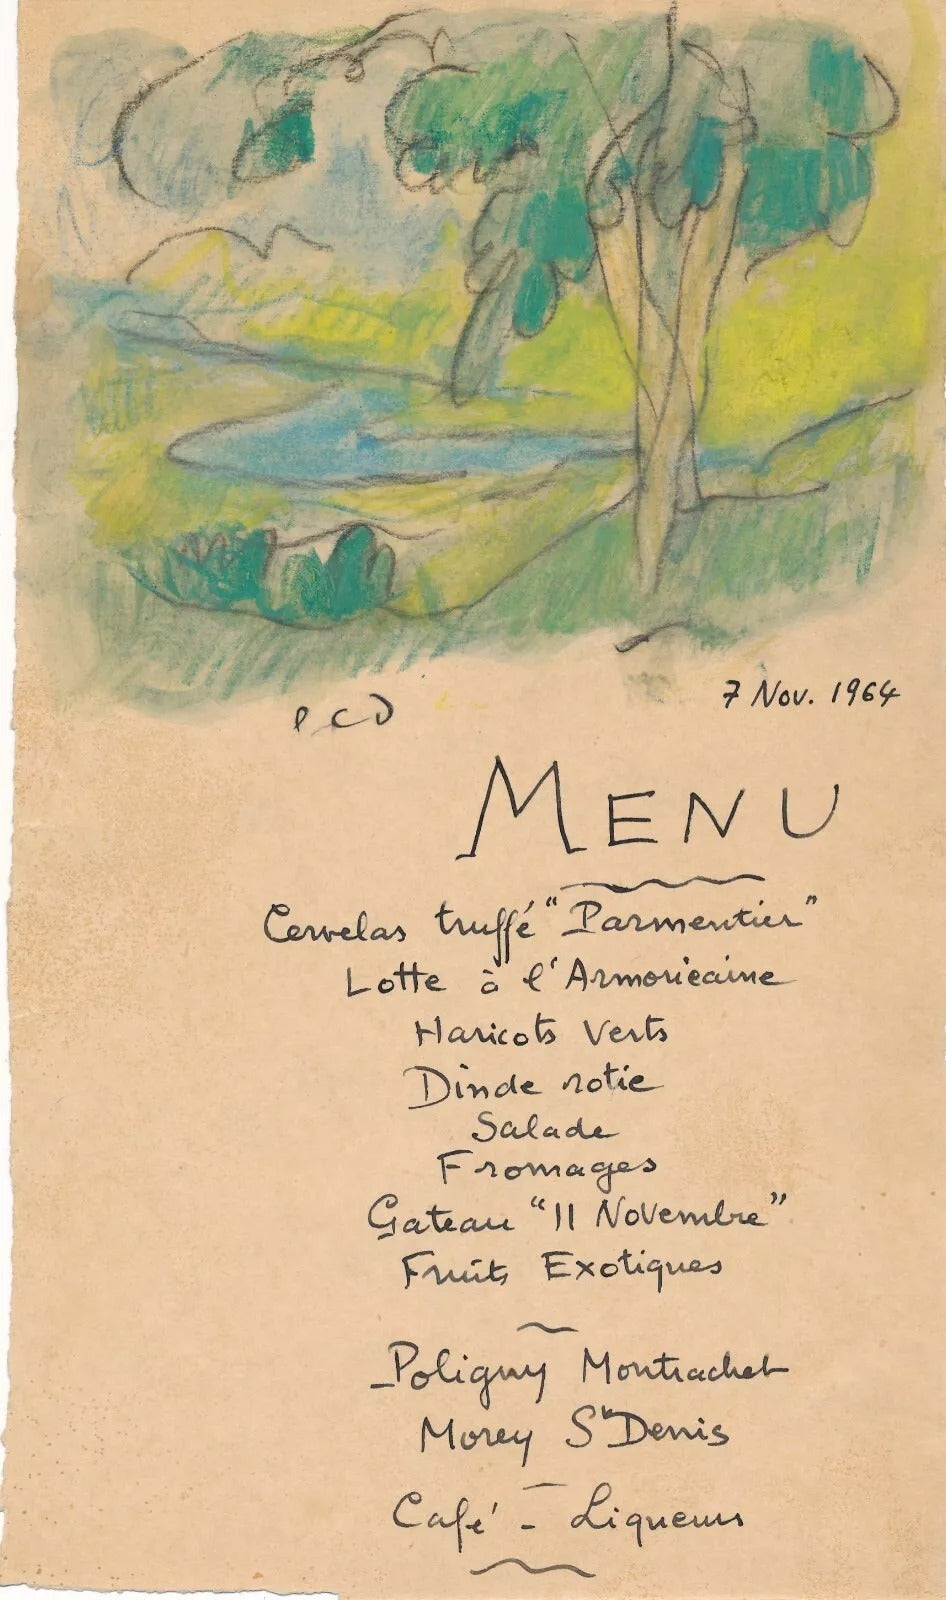 PCD
7 Nov. 1964
MENU
Cervelas truffé "Parmentier"
Lotte à l'Armoricaine
Haricots Verts
Dinde rotie
Salade
Fromages
Gateau "11 Novembre"
Fruits Exotiques
Poligny Montrachet
Morey St Denis
Café - Liqueurs